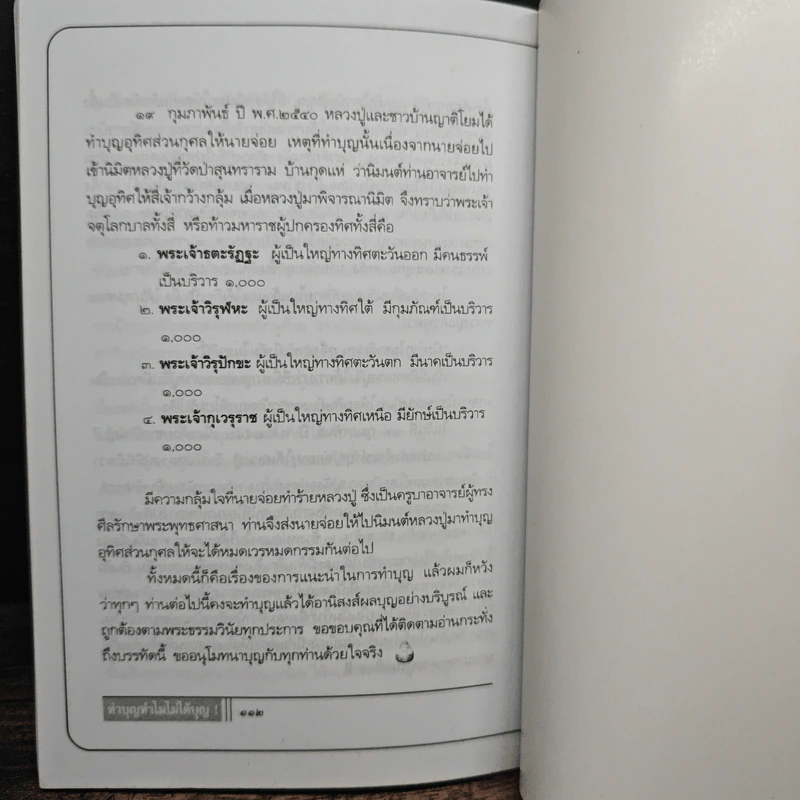 ๑๙ กุมภาพันธ์ ปี พ.ศ.๒๕๔๐ หลวงปู่และชาวบ้านญาติโยมได้
ทำบุญอุทิศส่วนกุศลให้นายจ่อย เหตุที่ทำบุญนั้นเนื่องจากนายจ่อยไป
เข้านิมิตหลวงปู่ที่วัดป่าสุนทราราม บ้านกุดแห่ ว่านิมนต์ท่านอาจารย์ไปทำ
บุญอุทิศให้สี่เจ้ากว้างกลุ้ม เมื่อหลวงปู่มาพิจารณานิมิต จึงทราบว่าพระเจ้า
จตุโลกบาลทั้งสี่ หรือท้าวมหาราชผู้ปกครองทิศทั้งสี่คือ
๑. พระเจ้าธตะรัฏฐะ ผู้เป็นใหญ่ทางทิศตะวันออก มีคนธรรพ์
เป็นบริวาร ๑,๐๐๐
๒. พระเจ้าวิรุฬหะ ผู้เป็นใหญ่ทางทิศใต้ มีกุมภัณฑ์เป็นบริวาร
๑,๐๐๐
๓. พระเจ้าวิรุปักขะ ผู้เป็นใหญ่ทางทิศตะวันตก มีนาคเป็นบริวาร
๑,๐๐๐
๔. พระเจ้ากุเวรุราช ผู้เป็นใหญ่ทางทิศเหนือ มียักษ์เป็นบริวาร
๑,๐๐๐
มีความกลุ้มใจที่นายจ่อยทำร้ายหลวงปู่ ซึ่งเป็นครูบาอาจารย์ผู้ทรง
ศีลรักษาพระพุทธศาสนา ท่านจึงส่งนายจ่อยให้ไปนิมนต์หลวงปู่มาทำบุญ
อุทิศส่วนกุศลให้จะได้หมดเวรหมดกรรมกันต่อไป
ทั้งหมดนี้ก็คือเรื่องของการแนะนำในการทำบุญ แล้วผมก็หวัง
ว่าทุกๆ ท่านต่อไปนี้คงจะทำบุญแล้วได้อานิสงส์ผลบุญอย่างบริบูรณ์ และ
ถูกต้องตามพระธรรมวินัยทุกประการ ขอขอบคุณที่ได้ติดตามอ่านกระทั่ง
ถึงบรรทัดนี้ ขออนุโมทนาบุญกับทุกท่านด้วยใจจริง
ทำบุญทำไมไม่ได้บุญ ! ๑๑๒